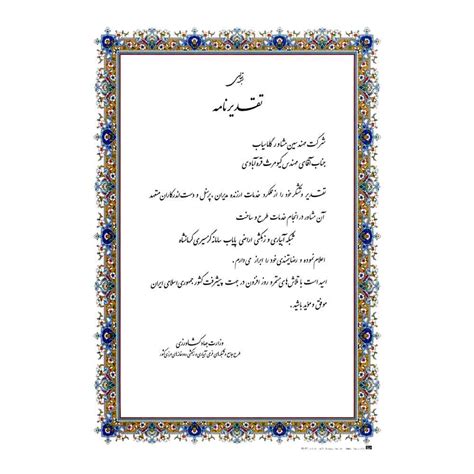 بسمه تعالی
تقدیرنامه
شرکت مهندسین مشاور گاماسیاب
جناب آقای مهندس کیومرث فرح‌آبادی
تقدیر و تشکر خود را از عملکرد خدمات ارزنده مدیران، پرسنل و دست اندرکاران متعهد
آن مشاور در انجام خدمات طرح و ساخت
شبکه آبیاری و زهکشی اراضی پایاب سامانه گرمسیری کرمانشاه
اعلام نموده و رضایتمندی خود را ابراز می دارم.
امید است با تلاش‌های مستمر و روز افزون در جهت پیشرفت کشور جمهوری اسلامی ایران
موفق و مؤید باشید.
وزارت جهاد کشاورزی
طرح جامع شبکه‌های فرعی آبیاری و زهکشی رودخانه‌های مرزی کشور